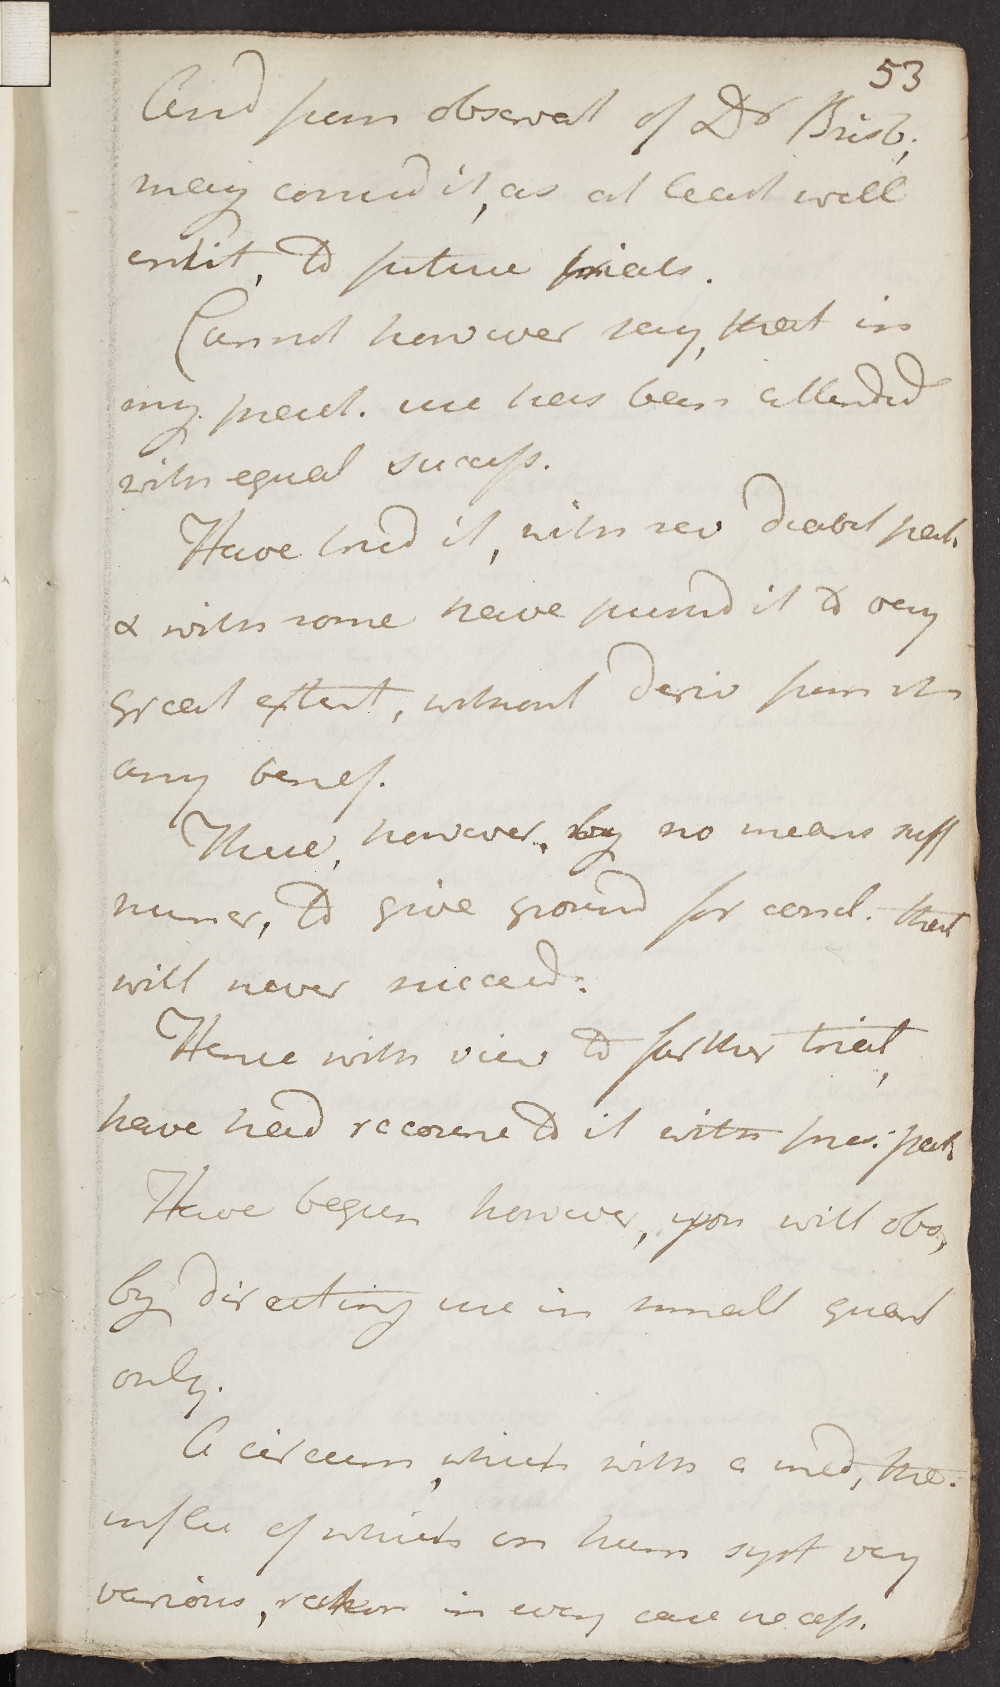 53
And from observat of Dr Brisb;
may consid it, as at least well
entit, to future trials.
Cannot however say, that in
my pract. use has been attended
with equal success.
Have tried it, with sev diabet pat.
& with some have pushd it to very
great extent, without deriv from it
any benef.
These, however, by no means suff
numer, to give ground for concl. that
will never succeed.
Hence with view to farther trial,
have had recourse to it with pres. pat.
Have begun however, you will obs,
by directing use in small quant
only.
A circum, which with a med, the.
influ of which on hum syst very
various, in every case necess.